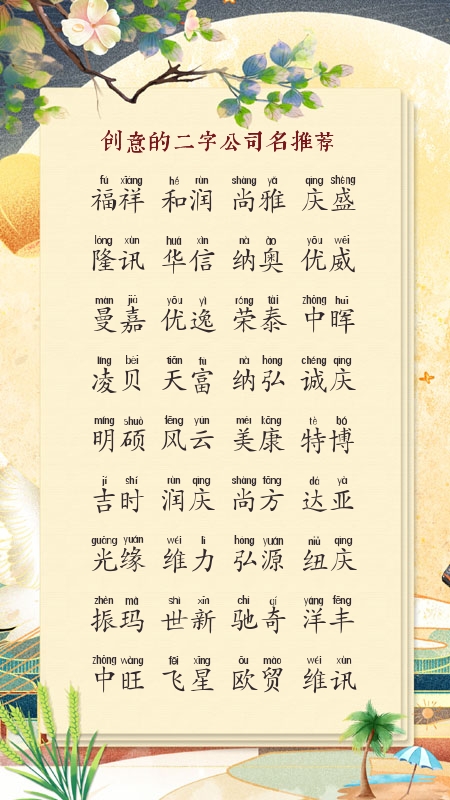 创意的二字公司名推荐
fú xiáng hé rùn shàng yǎ qìng shéng
福祥 和润 尚雅 庆盛
lóng xùn huá xìn nà ào yōu wēi
隆讯 华信 纳奥 优威
màn jiā yōu yì róng tài zhōng huī
曼嘉 优逸 荣泰 中晖
líng bèi tiān fù nà hóng chéng qìng
凌贝 天富 纳弘 诚庆
míng shuò fēng yún měi kāng tè bó
明硕 风云 美康 特博
jí shí rùn qìng shàng fāng dá yà
吉时 润庆 尚方 达亚
guāng yuán wéi lì hóng yuán niǔ qìng
光缘 维力 弘源 纽庆
zhèn mǎ shì xīn chí qí yáng fēng
振玛 世新 驰奇 洋丰
zhōng wàng fēi xīng ōu mào wéi xùn
中旺 飞星 欧贸 维讯